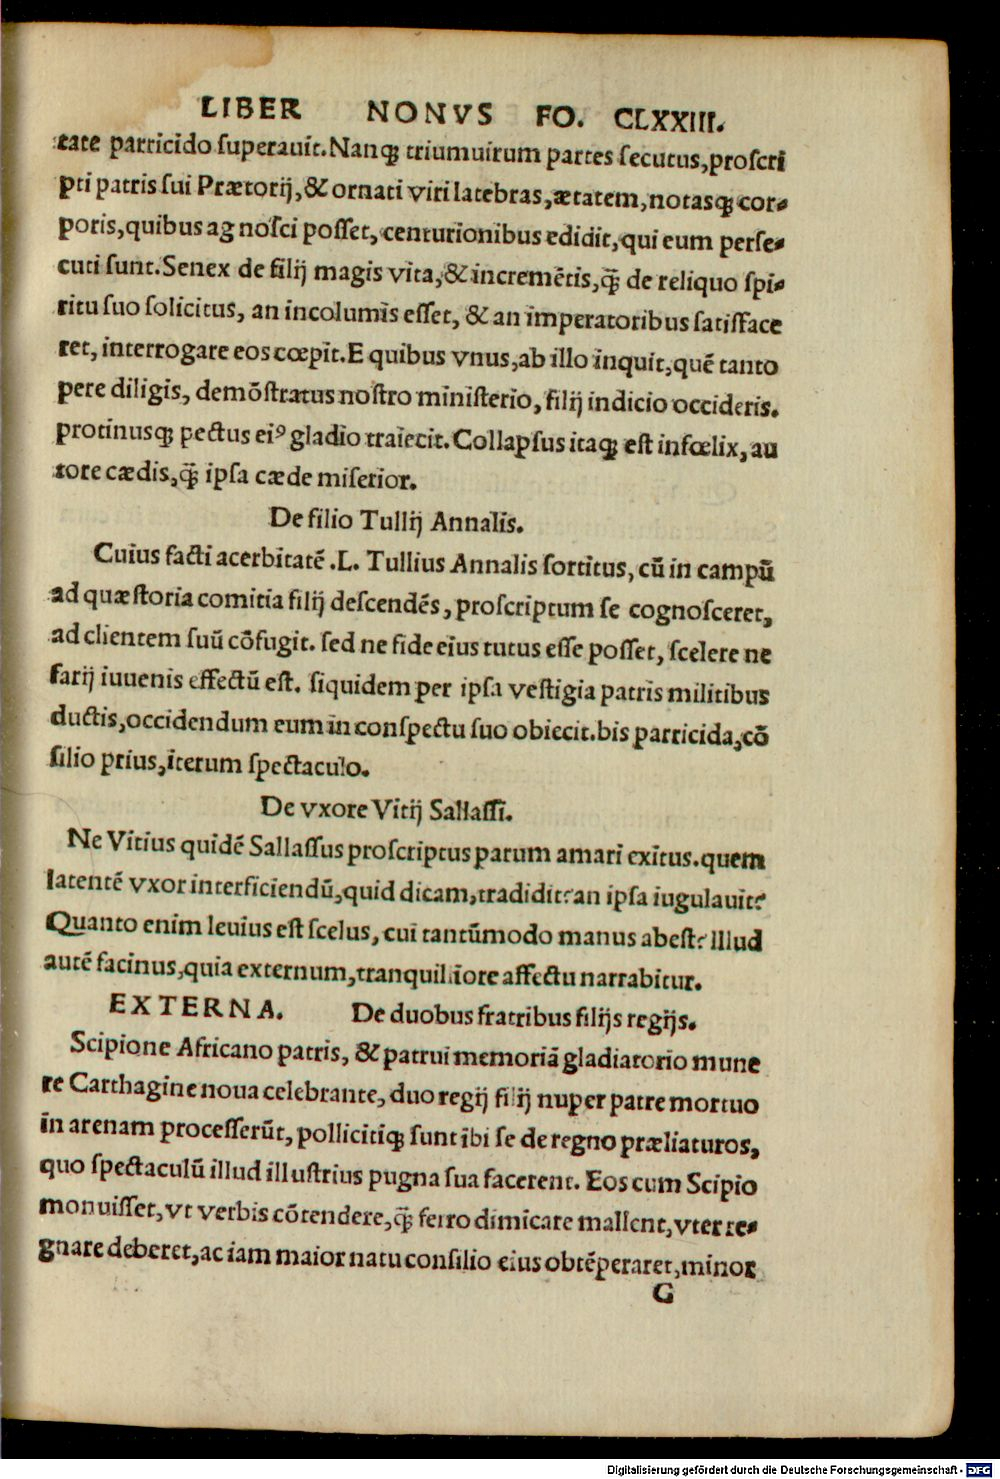 LIBER NONVS FO. CLXXIII.
tate parricido ſuperauit. Nanqꝫ triumuirum partes ſecutus, proſcri
pti patris ſui Prætorij, & ornati viri latebras, ætatem, notasqꝫ cor-
poris, quibus agnoſci poſſet, centurionibus edidit, qui eum perſe-
cuti ſunt. Senex de filij magis vita, & incremētis, q̃ de reliquo ſpi-
ritu ſuo ſolicitus, an incolumis eſſet, & an imperatoribus ſatiſface
ret, interrogare eos cœpit. E quibus vnus, ab illo inquit, quē tanto
pere diligis, demōſtratus noſtro miniſterio, filij indicio occideris.
protinusqꝫ pectus eiꝰ gladio traiecit. Collapſus itaqꝫ eſt infœlix, au
tore cædis, q̃ ipſa cæde miſerior.
De filio Tullij Annalis.
Cuius facti acerbitatē .L. Tullius Annalis ſortitus, cū in campū
ad quæſtoria comitia filij deſcendēs, proſcriptum ſe cognoſceret,
ad clientem ſuū cōfugit. ſed ne fide eius tutus eſſe poſſet, ſcelere ne
farij iuuenis effectū eſt. ſiquidem per ipſa veſtigia patris militibus
ductis, occidendum eum in conſpectu ſuo obiecit. bis parricida, cō
ſilio prius, iterum ſpectaculo.
De vxore Vitij Sallaſſi.
Ne Vitius quidē Sallaſſus proſcriptus parum amari exitus. quem
latentē vxor interficiendū, quid dicam, tradidit? an ipſa iugulauit?
Quanto enim leuius eſt ſcelus, cui tantūmodo manus abeſt? Illud
autē facinus, quia externum, tranquilliore affectu narrabitur.
EXTERNA. De duobus fratribus filijs regijs.
Scipione Africano patris, & patrui memoriā gladiatorio mune
re Carthagine noua celebrante, duo regij filij nuper patre mortuo
in arenam proceſſerūt, pollicitiqꝫ ſunt ibi ſe de regno præliaturos,
quo ſpectaculū illud illuſtrius pugna ſua facerent. Eos cum Scipio
monuiſſet, vt verbis cōtendere, q̃ ferro dimicare mallent, vter re-
gnare deberet, ac iam maior natu conſilio eius obtēperaret, minor
G
Digitalisierung gefördert durch die Deutsche Forschungsgemeinschaft - DFG